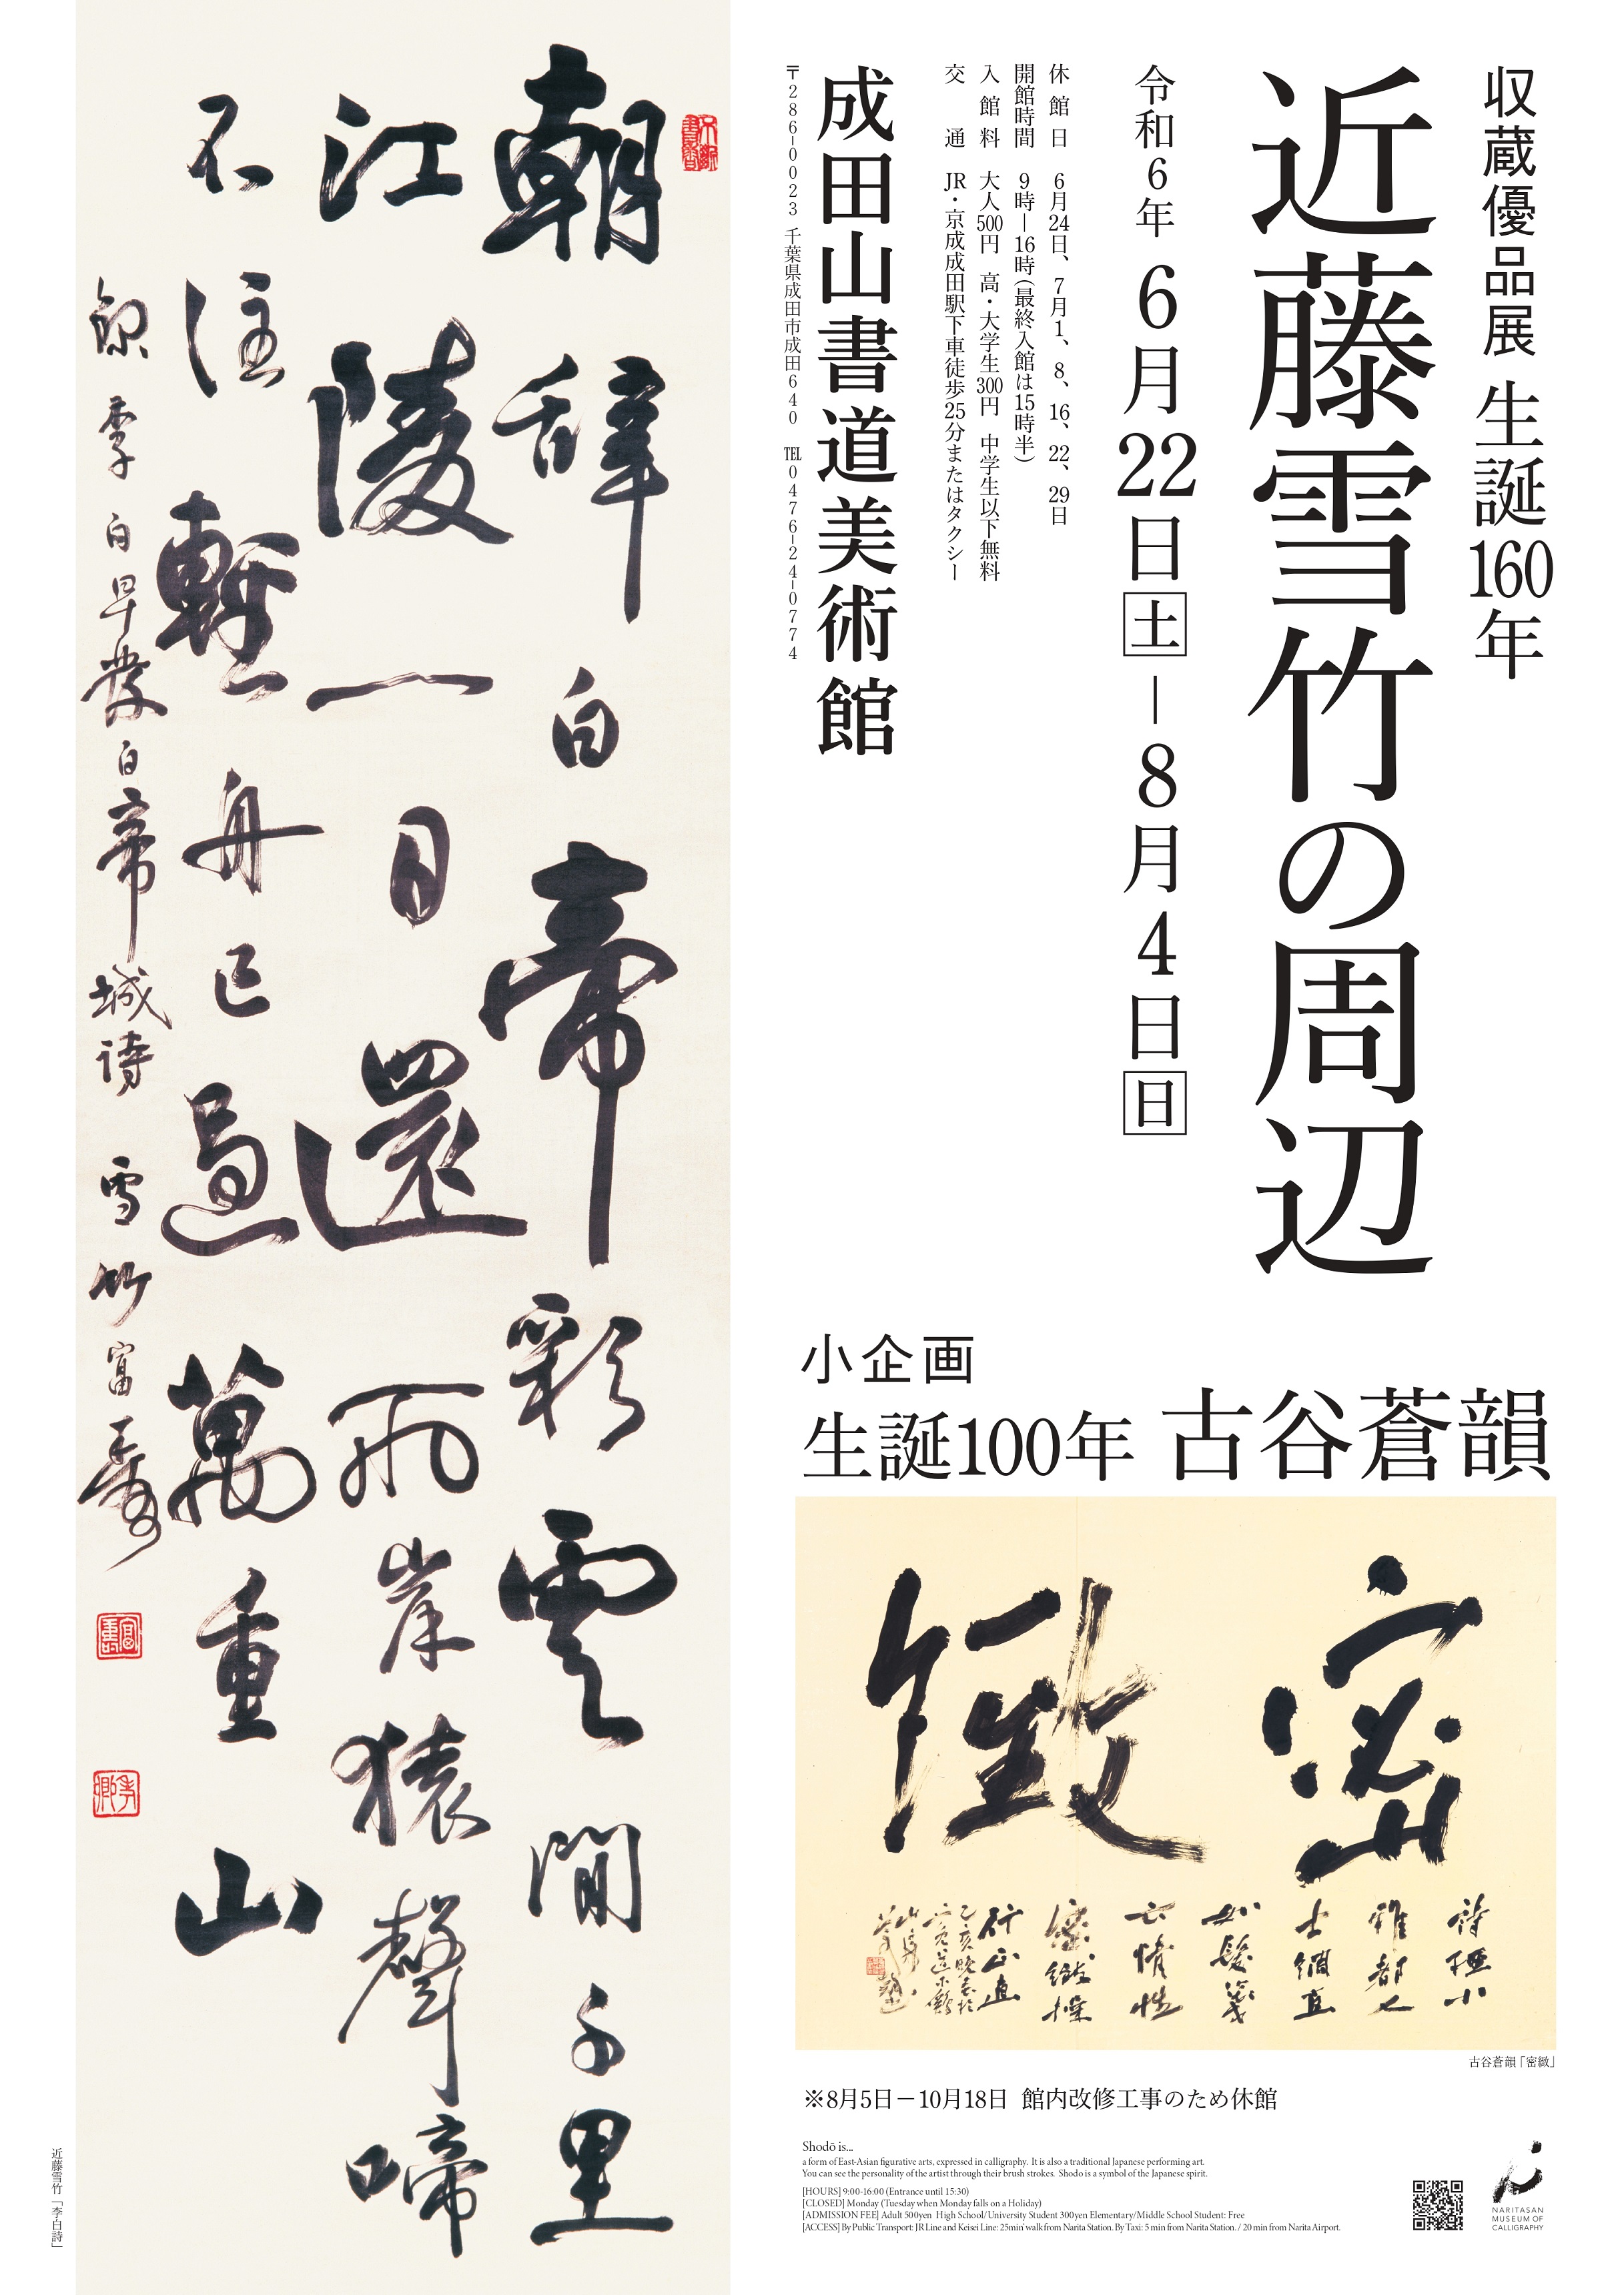 収蔵優品展 生誕160年
近藤雪竹の周辺
令和6年 6月22日土―8月4日日
休館日 6月24日、7月1、8、16、22、29日
開館時間 9時―16時(最終入館は15時半)
入館料 大人500円 高・大学生300円 中学生以下無料
交通 JR・京成成田駅下車徒歩25分またはタクシー
成田山書道美術館
〒286-0023 千葉県成田市成田640 TEL0476-24-0774
朝辞白帝彩雲間千里
江陵一日還兩岸猿聲啼
不住輕舟已過萬重山
録李白早發白帝城詩 雪竹富壽
近藤雪竹「李白詩」
小企画
生誕100年 古谷蒼韻
密緻
詩經小
雅都人
士綢直
如髮箋
云情性
密緻操
行正直
古谷蒼韻「密緻」
※8月5日－10月18日 館内改修工事のため休館
Shodō is...
a form of East-Asian figurative arts, expressed in calligraphy. It is also a traditional Japanese performing art.
You can see the personality of the artist through their brush strokes. Shodo is a symbol of the Japanese spirit.
[HOURS] 9:00-16:00 (Entrance until 15:30)
[CLOSED] Monday (Tuesday when Monday falls on a Holiday)
[ADMISSION FEE] Adult 500yen High School/University Student 300yen Elementary/Middle School Student: Free
[ACCESS] By Public Transport: JR Line and Keisei Line: 25min' walk from Narita Station. By Taxi: 5 min from Narita Station. / 20 min from Narita Airport.
NARITASAN
MUSEUM OF
CALLIGRAPHY